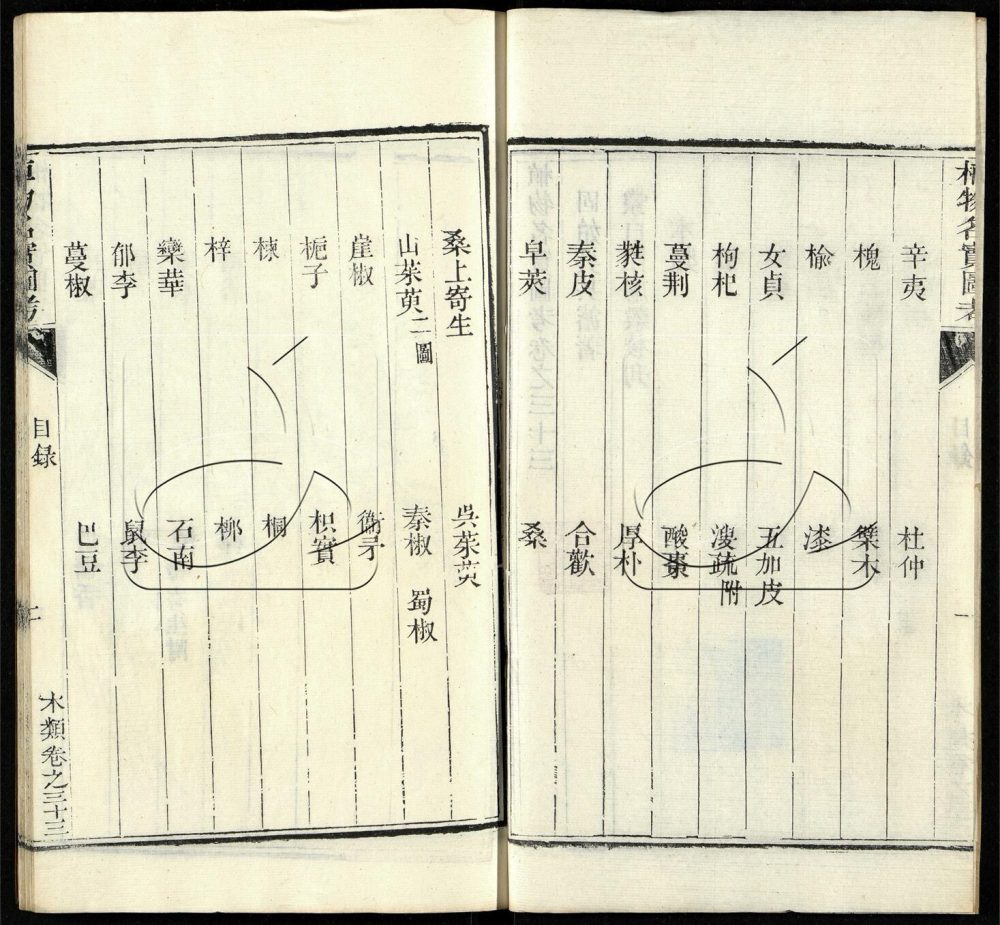 植物名實圖考
辛夷 杜仲
槐 櫱木
榆 漆
女貞 五加皮
枸杞 溲疏附
蔓荆 酸棗
蕤核 厚朴
秦皮 合歡
皁莢 桑
桑上寄生 吳茱萸
山茱萸二圖 秦椒 蜀椒
崖椒 衛矛
梔子 枳實
楝 桐
梓 柳
欒華 石南
郁李 鼠李
蔓椒 巴豆
目録 二 木類卷之三十三